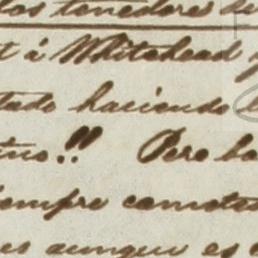 los tenedores de
t á Whitehead y
tado haciendo
tino!! Pero ha
iempre comete
es aunque es